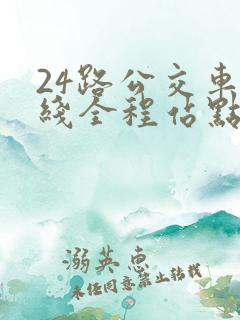 24路公交車
綫全程佔點
溺英惠
未任同意禁止转载